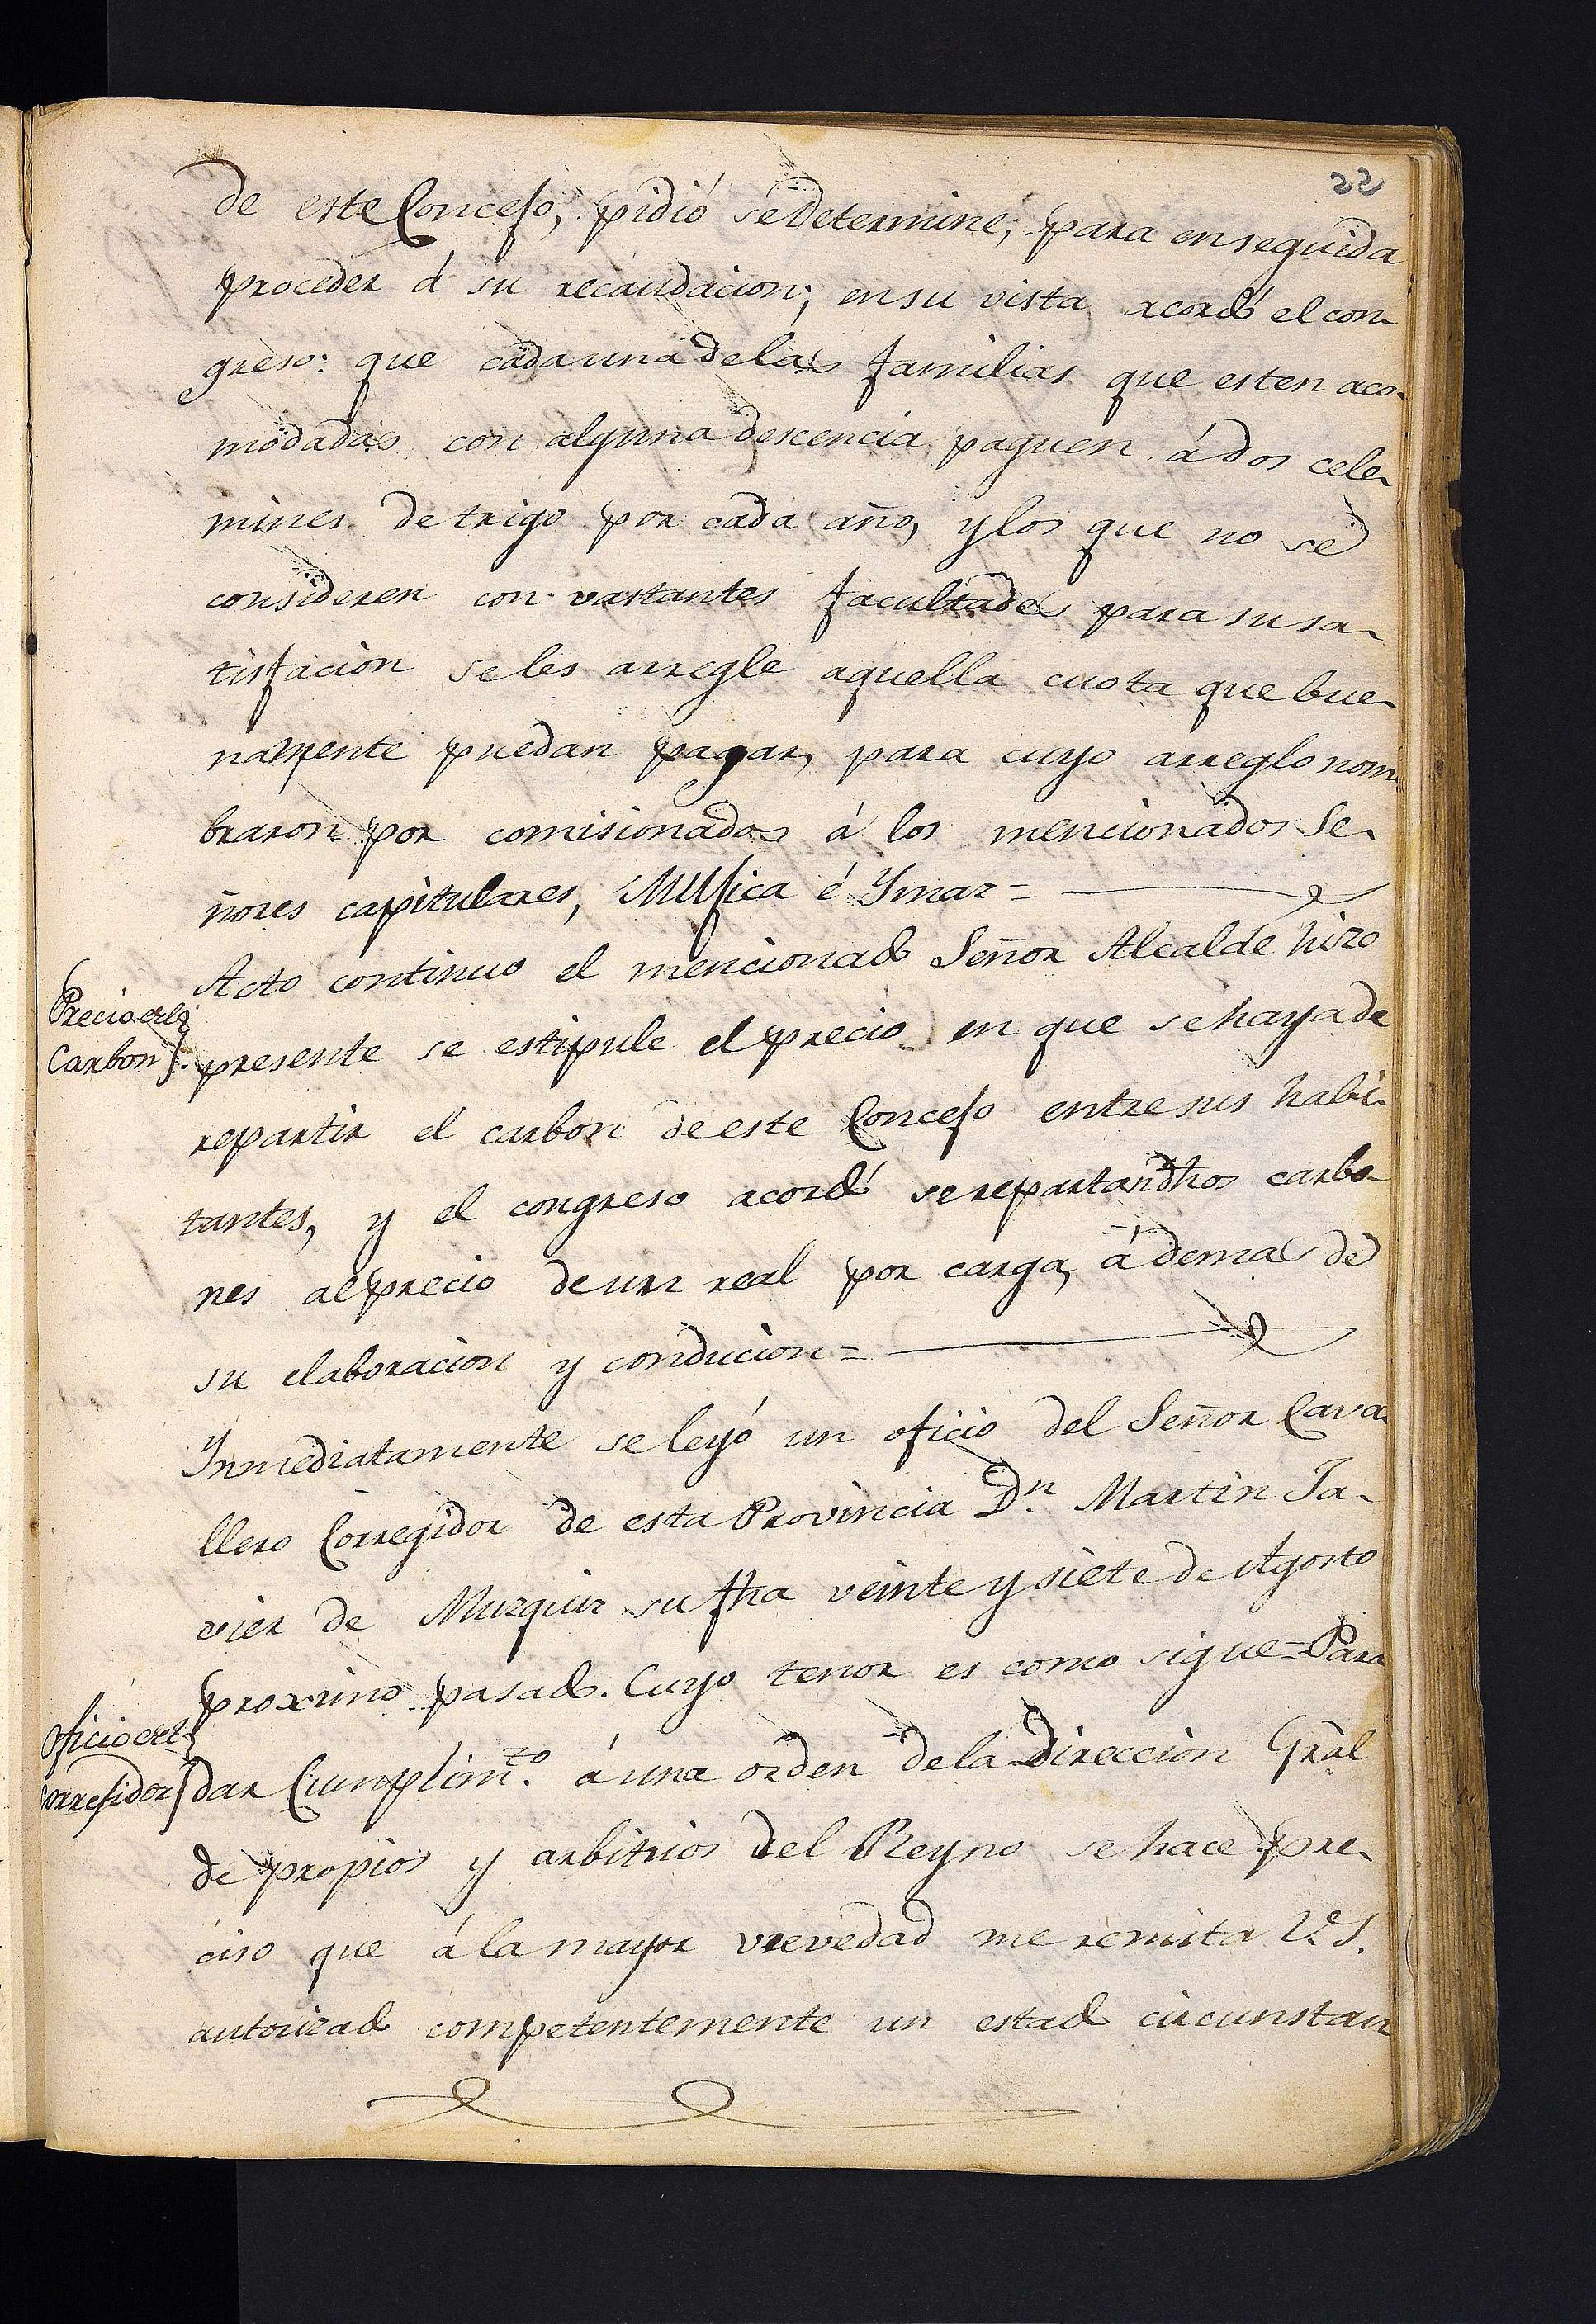 22
de este Concejo, pidió se determine, para en seguida
proceder á su recaudacion; en su vista acordó el con-
greso: que cada una de las familias que esten aco-
modadas con alguna descencia paguen á dos cele-
mines de trigo por cada año, y los que no se
consideren con vastantes facultades para su sa-
tisfacion se les arregle aquella cuota que bue-
namente puedan pagar, para cuyo arreglo nom-
braron por comisionados á los mencionados Se-
ñores capitulares, Mugica é Ymaz =
Acto continuo el mencionado Señor Alcalde hizo
Precio del
Carbon
presente se estipule el precio en que se haya de
repartir el carbon de este Concejo entre sus habi-
tantes, y el congreso acordó se repartan dhos carbo-
nes al precio de un real por carga, á demas de
su elaboracion y conducion =
Ynmediatamente se leyó un oficio del Señor Cava-
llero Corregidor de esta Provincia Dn. Martin Ja-
vier de Muzquiz su fha veinte y siete de Agosto
proximo pasado. Cuyo tenor es como sigue = Para
Oficio del
Corregidor
dar Cumplimto. á una orden de la Direccion Gral
de propios y arbitrios del Reyno se hace pre-
ciso que á la mayor vrevedad me remita V.S.
autorizado competentemente un estado circunstan